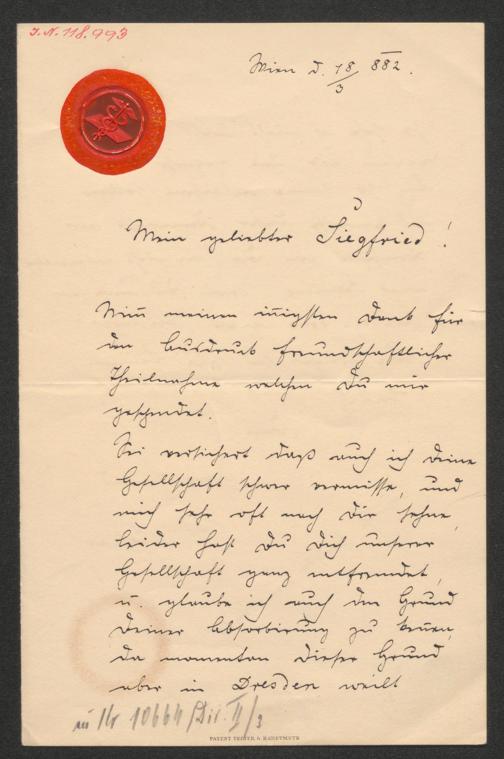 I.N. 118.993
Wien d. 18/3 882.
Mein geliebter Siegfried!
Nim̄ meinen in̄igsten Dank für
den Ausdruck freundschaftlicher
Theilnahme welchen Du mir
gespendet.
Sei versichert daß auch ich Deine
Gesellschaft schwer vermisse, und
mich sehr oft nach Dir sehne,
leider hast Du Dich unserer
Gesellschaft ganz entfremdet,
u. glaube ich auch den Grund
Deiner Absorbirung zu kennen,
da momentan dieser Grund
aber in Dresden weilt
Nr 10664
PATENT THEYER & HARDTMUTH